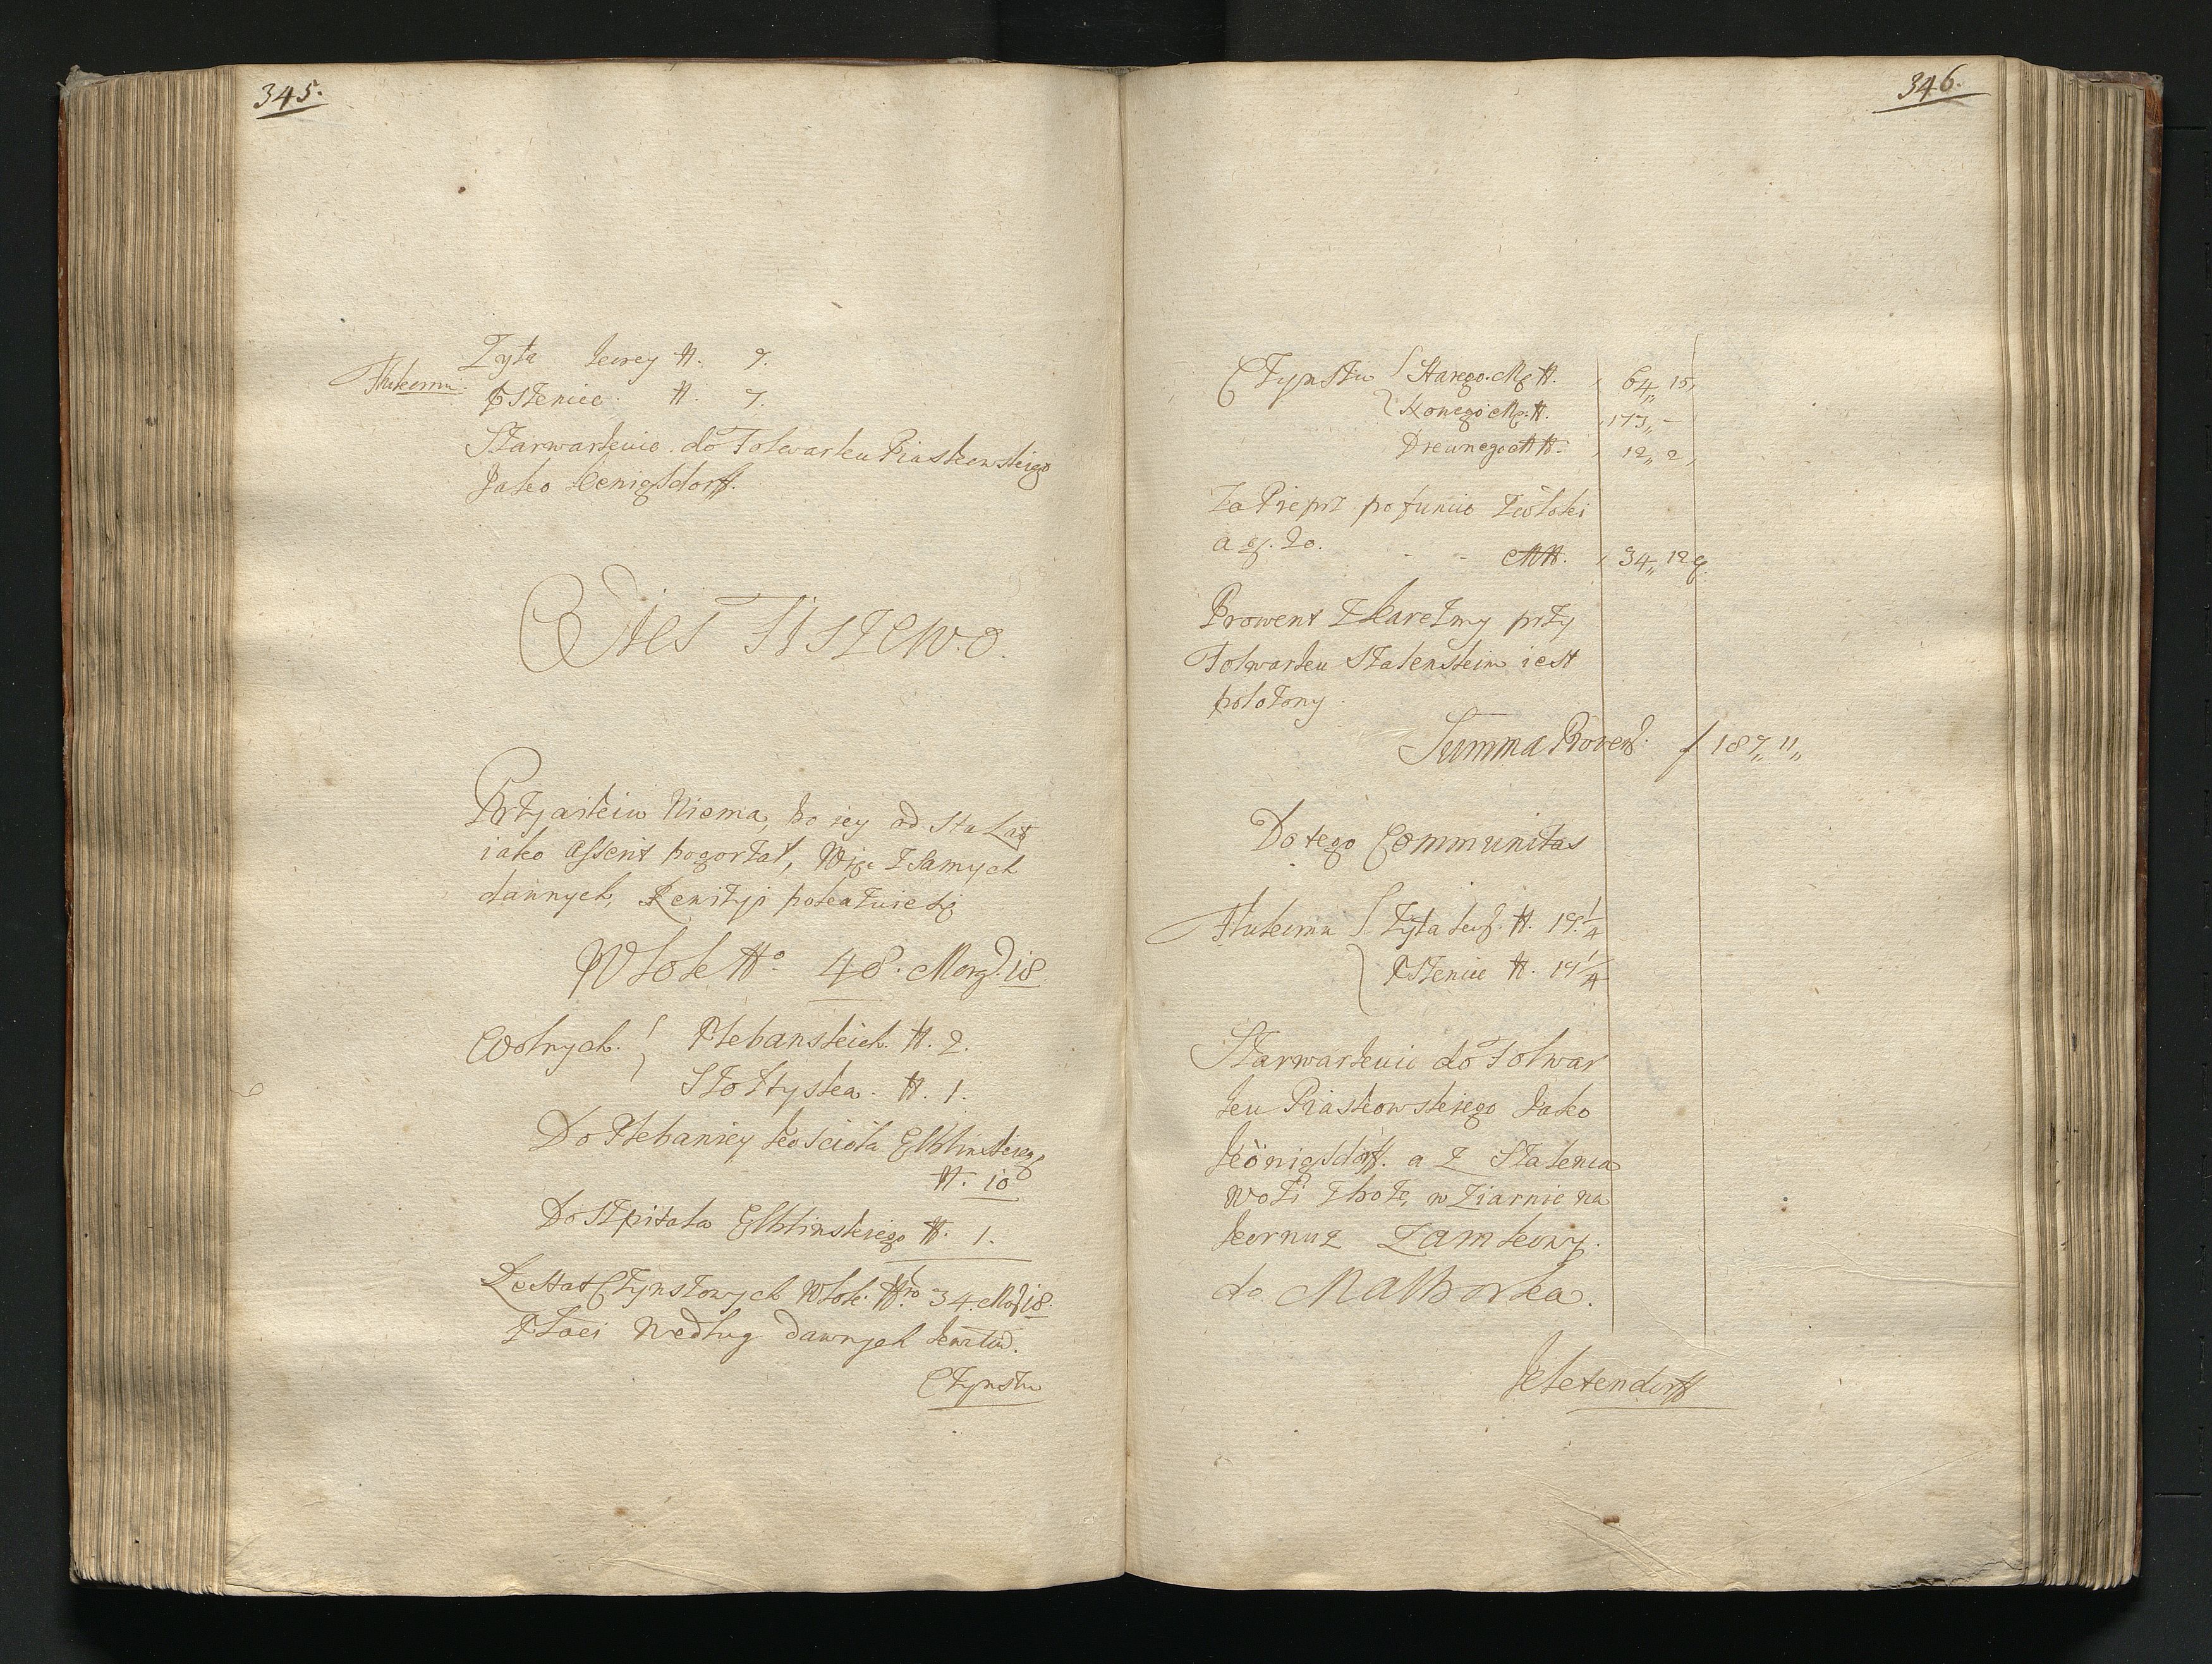 345.
Zyta korcy #. 7.
Tłukarnu.
Pszenice. #. 7.
Szarwarkuie do Folwarku Piaskowskiego
Jako Kenigsdorff.
Wies Fiszewo.
Przyasteiu Niema, bo iey od Stu Lat
iako Assent pogorzał, Więc z Samych
dawnych, Rewizyi pokazuie się
Włok No. 48. Morg. 18
Wolnych. { Plebanskich. #. 2.
Szołtyska. #. 1.
Do Plebaniey kosciola Elblinskieg
#. 10
Do Szpitala Elblinskiego #. 1.
Restat Czynszowych Włok. Nro 34. Morg 18.
Płaci Według Dawnych kwitow.
Czynszu
346.
Czynszu { Starego. M #. 64,, 15,
Nowego M. #. 173,, -
Drewnego M #. 12,, 2,
Za Pieprz po funcie z włoki
a g. 20. - - M #. 34,, 12 g.
Prowent z karczmy przy
Folwarku Stalenskim iest
położony.
Summa Provent. f 187,, 11,,
Do tego Communitas
Tłukarnu { Zyta korc. #. 19 1/4
Pszenice #. 19 1/4
Szarwarkuie do Folwar
ku Piaskowskiego Jako
Königsdorff. a z Stalewa
wozi zboże, w Ziarnie na
kornuz Zamkowy.
do Malborka.
Kletendorff